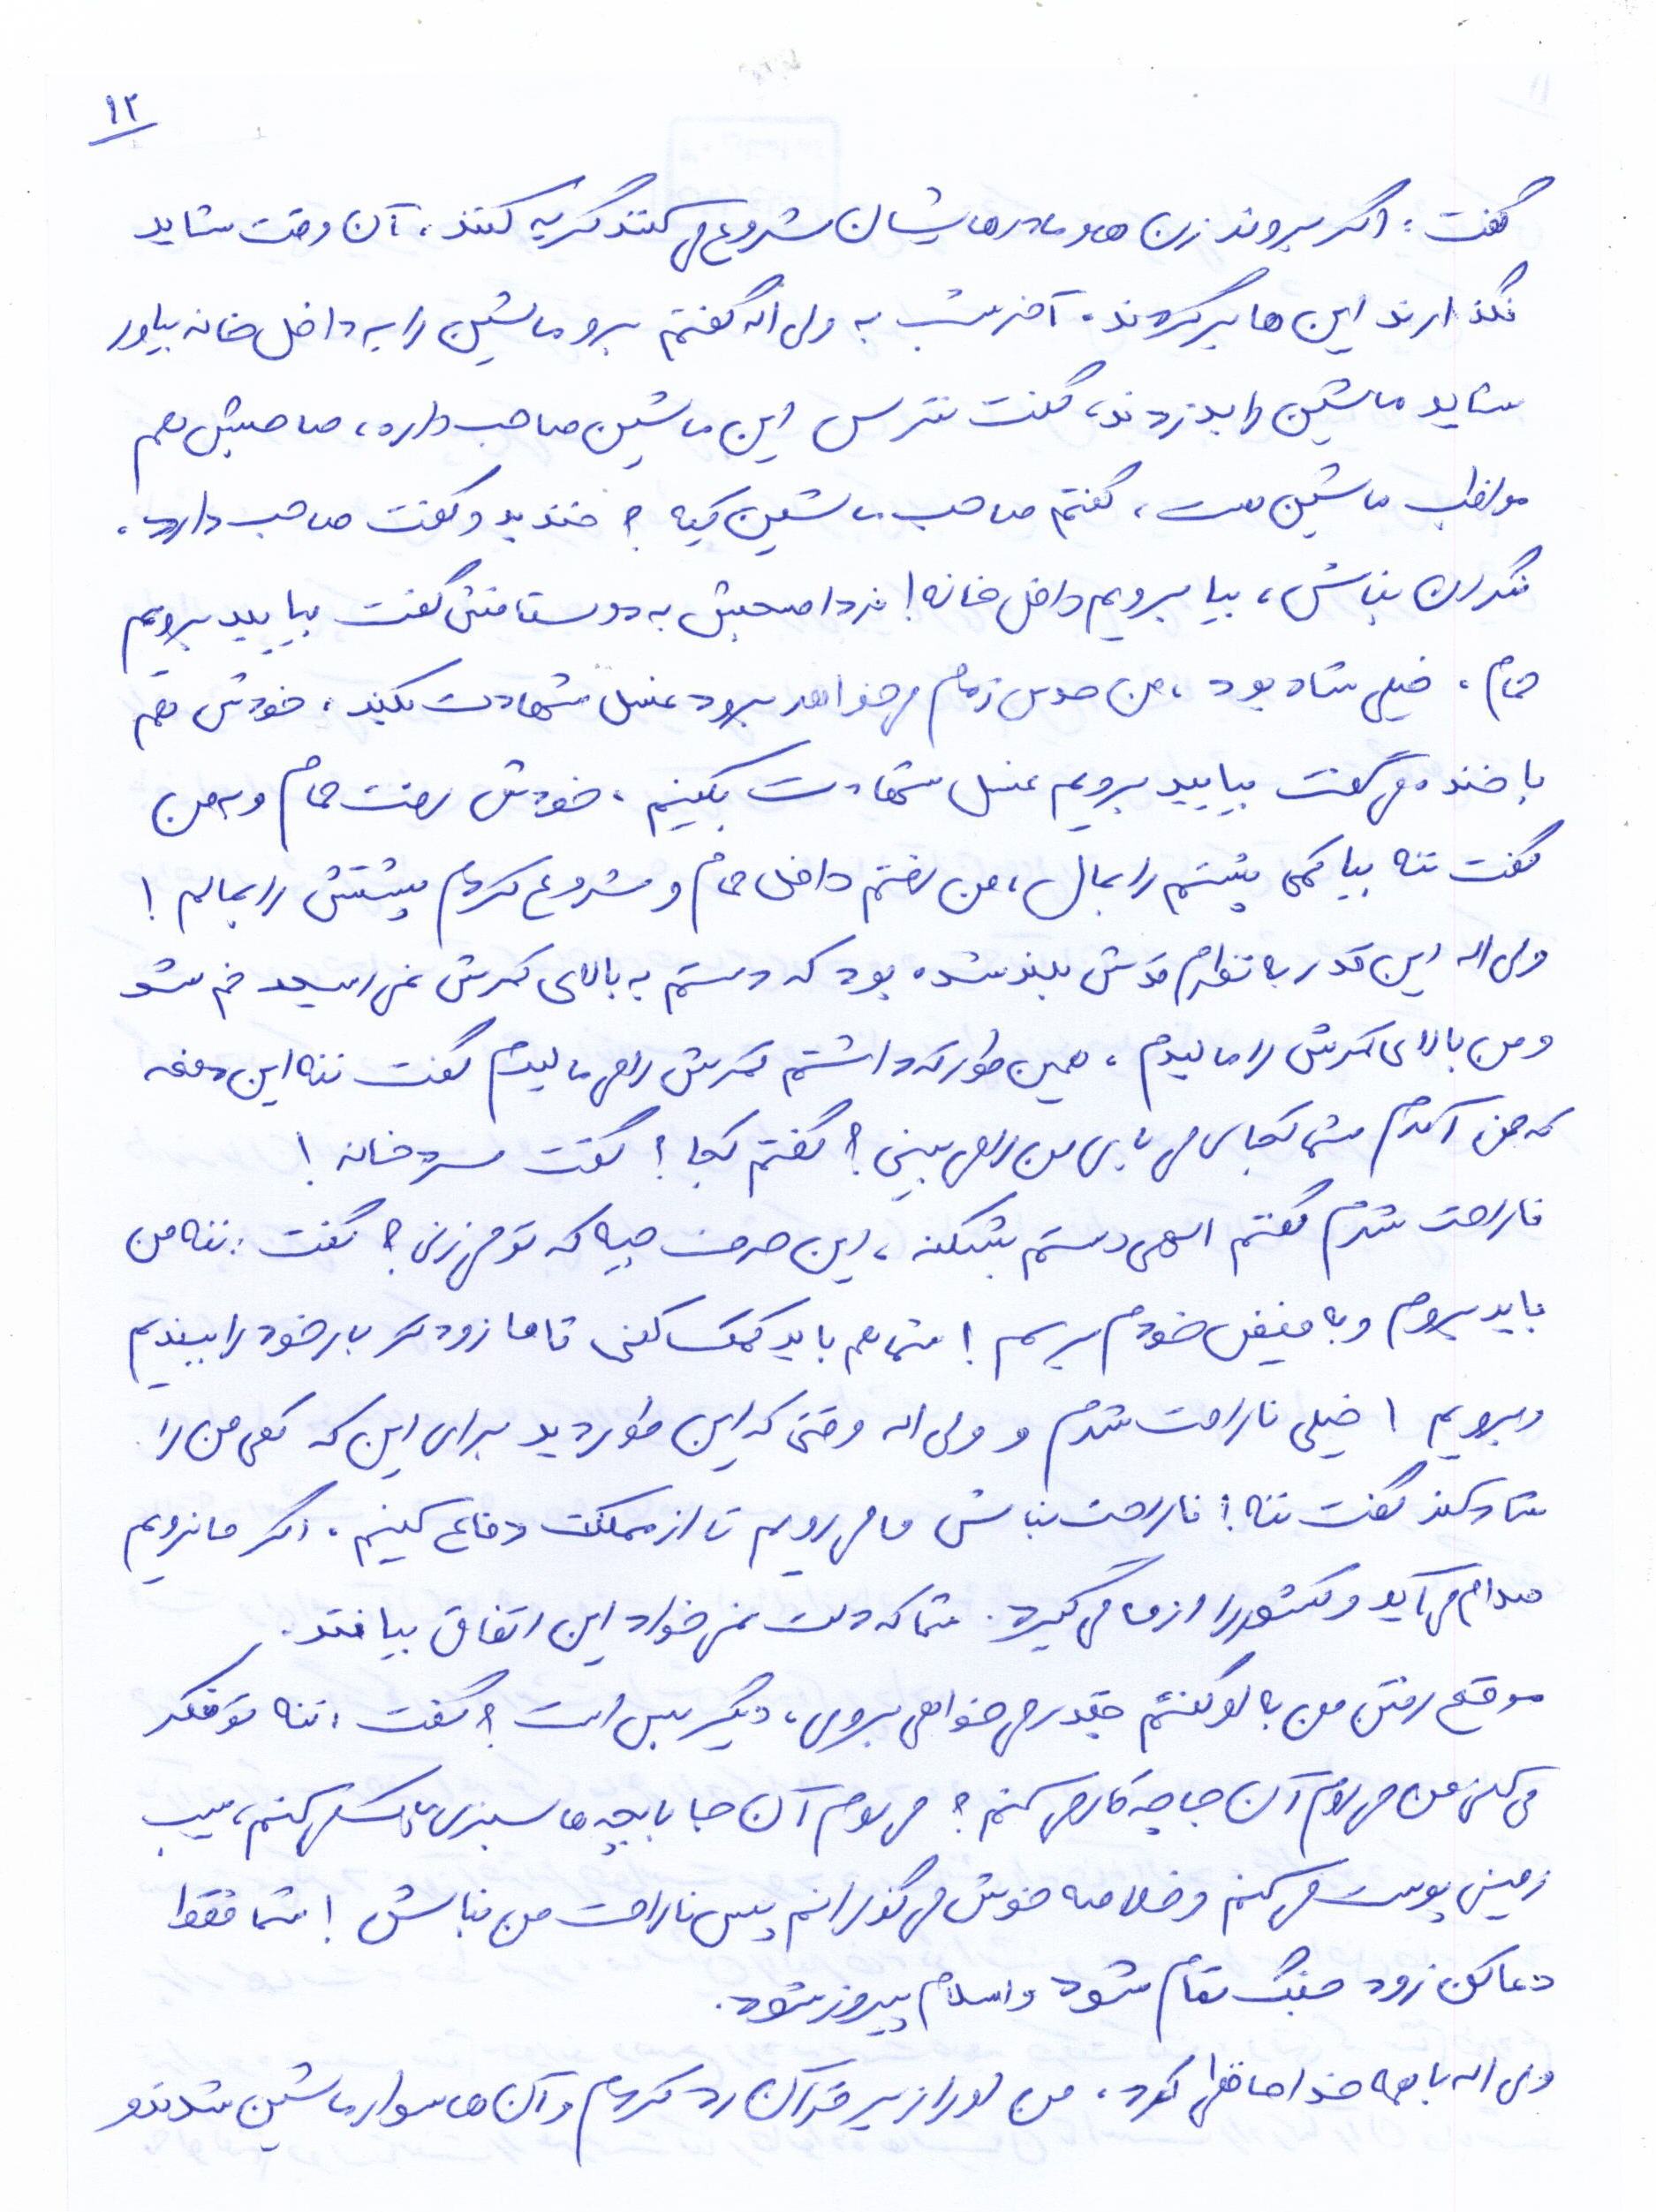 ۱۲
گفت: اگر بروند زن ها و مادرهایشان شروع می کنند گریه کنند، آن وقت شاید
نگذارند این ها برگردند. آخر شب به ولی اله گفتم برو ماشین را به داخل خانه بیاور
شاید ماشین را بدزدند، گفت نترس این ماشین صاحب داره، صاحبش هم
مواظب ماشین هست، گفتم صاحب ماشین کیه؟ خندید و گفت صاحب دارد،
نگران نباش، بیا برویم داخل خانه! فردا صبحش به دوستانش گفت بیایید برویم
حمام، خیلی شاد بود، من حدس زدم می خواهد برود غسل شهادت بکند، خودش هم
با خنده می گفت بیایید برویم غسل شهادت بکنیم، خودش رفت حمام و به من
گفت ننه بیا کمی پشتم را بمال، من رفتم داخل حمام و شروع کردم پشتش را بمالم!
ولی اله این قدر به نظرم قدش بلند شده بود که دستم به بالای کمرش نمی رسید خم شد
و من بالای کمرش را مالیدم، همین طور که داشتم کمرش را می مالیدم گفت ننه این دفعه
که من آمدم شما کجا می یایی من را می بینی؟ گفتم کجا؟ گفت سردخانه!
ناراحت شدم گفتم الهی دستم بشکنه، این حرف چیه که تو می زنی؟ گفت: ننه من
باید بروم و به فیض خودم برسم! شما هم باید کمک کنی تا ما زودتر بار خود را ببندیم
و برویم! خیلی ناراحت شدم و ولی اله وقتی که این طور دید برای این که کمی من را
شاد کند گفت ننه! ناراحت نباش ما می رویم تا از مملکت دفاع کنیم، اگر ما نرویم
صدام می آید و کشور را از ما می گیرد. شما که دلت نمی خواد این اتفاق بیافتد.
موقع رفتن من به او گفتم چقدر می خواهی بروی، دیگر بس است؟ گفت: ننه تو فکر
می کنی من می روم آن جا چه کار می کنم؟ می روم آن جا با بچه ها سبزی پاک می کنم، سیب
زمینی پوست می کنم و خلاصه خوش می گذرانم پس ناراحت من نباش! شما فقط
دعا کن زود جنگ تمام شود و اسلام پیروز شود.
ولی اله با همه خداحافظی کرد، من او را از زیر قرآن رد کردم و آن ها سوار ماشین شدند و